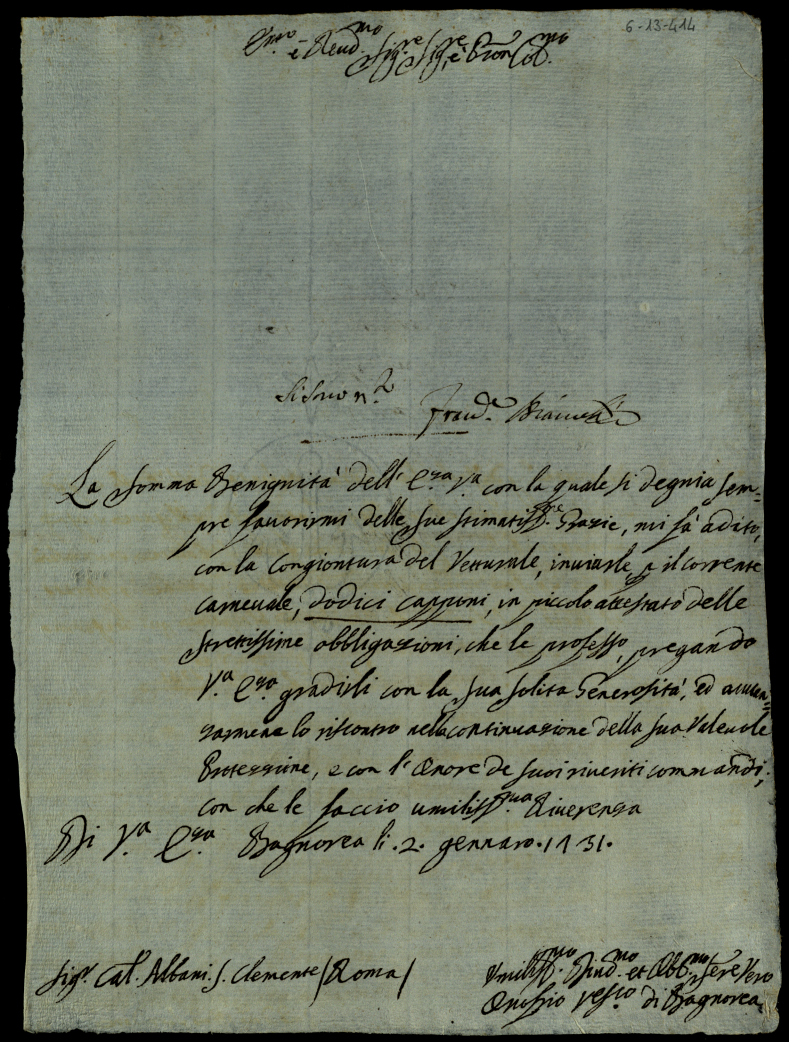 6-13-414
E.mo e Reud.mo Sig.re Sig.re e Pron Col.mo
La somma Benignità dell' E.za V.a con la quale si degnia sem=
pre fauorirmi delle sue stimatiss.me Grazie, mi fà adito,
con la congiontura del Vetturale, inuiarle p il corrente
carneuale, dodici capponi, in piccolo attestato delle
strettissime obbligazioni, che le professo, pregando
V.a E.za gradirli con la sua solita Generosità, ed auuan=
zarmene lo riscontro nella continuazione della sua Valeuole
Protezzione, e con l' Onore de suoi riueriti commandi;
con che le faccio umiliss.ma Riuerenza
Di V.a E.za Bagnorea li .2. gennaro .1731.
Sig.r Cal. Albani S. Clemente /Roma/
Umiliss.mo Diuot.mo et Obb.mo Sere Vero
Onofrio Vesc.o di Bagnorea